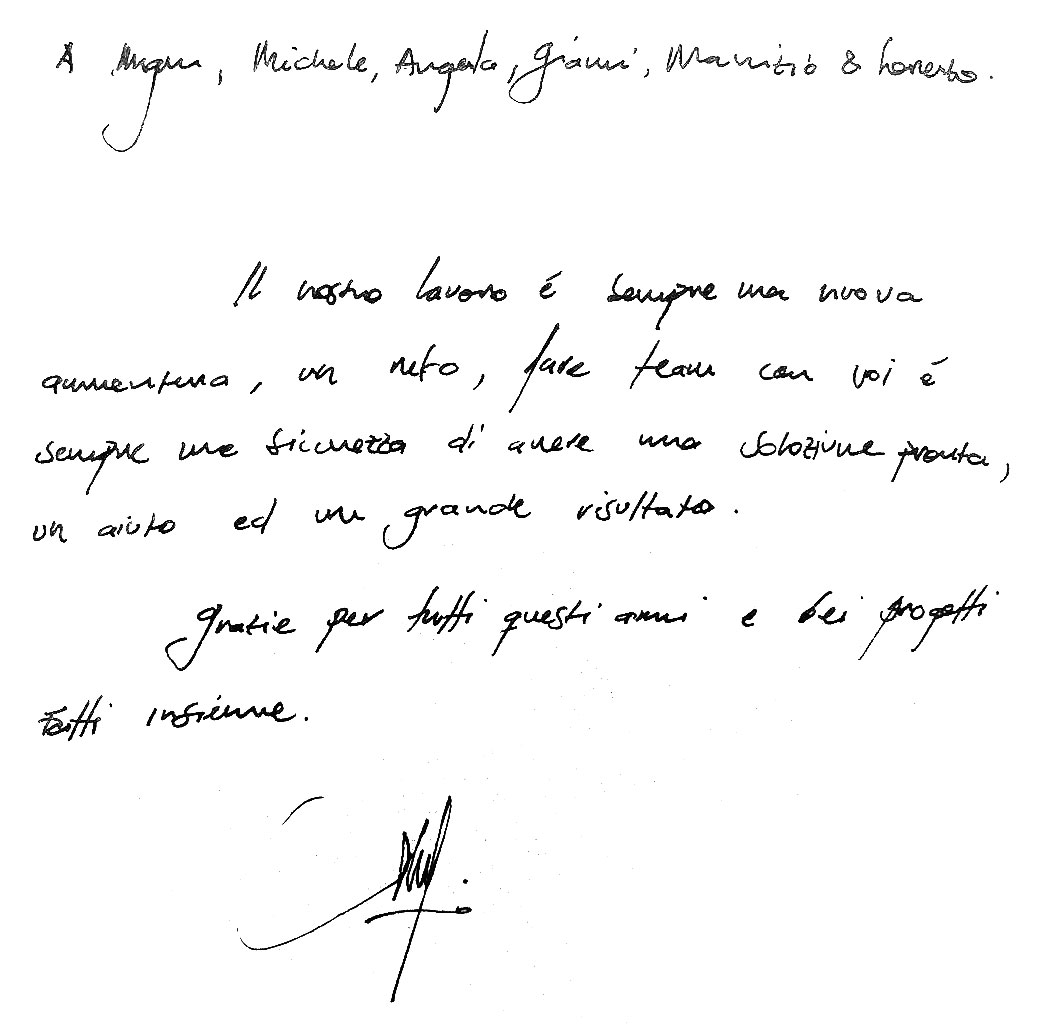 A , Michele, Angela, Gianni, Maurizio & Lorenzo.
Il nostro lavoro é sempre una nuova
avventura, un , fare team con voi é
sempre una sicurezza di avere una soluzione pronta,
un aiuto ed un grande risultato.
Grazie per tutti questi anni e bei progetti
fatti insieme.